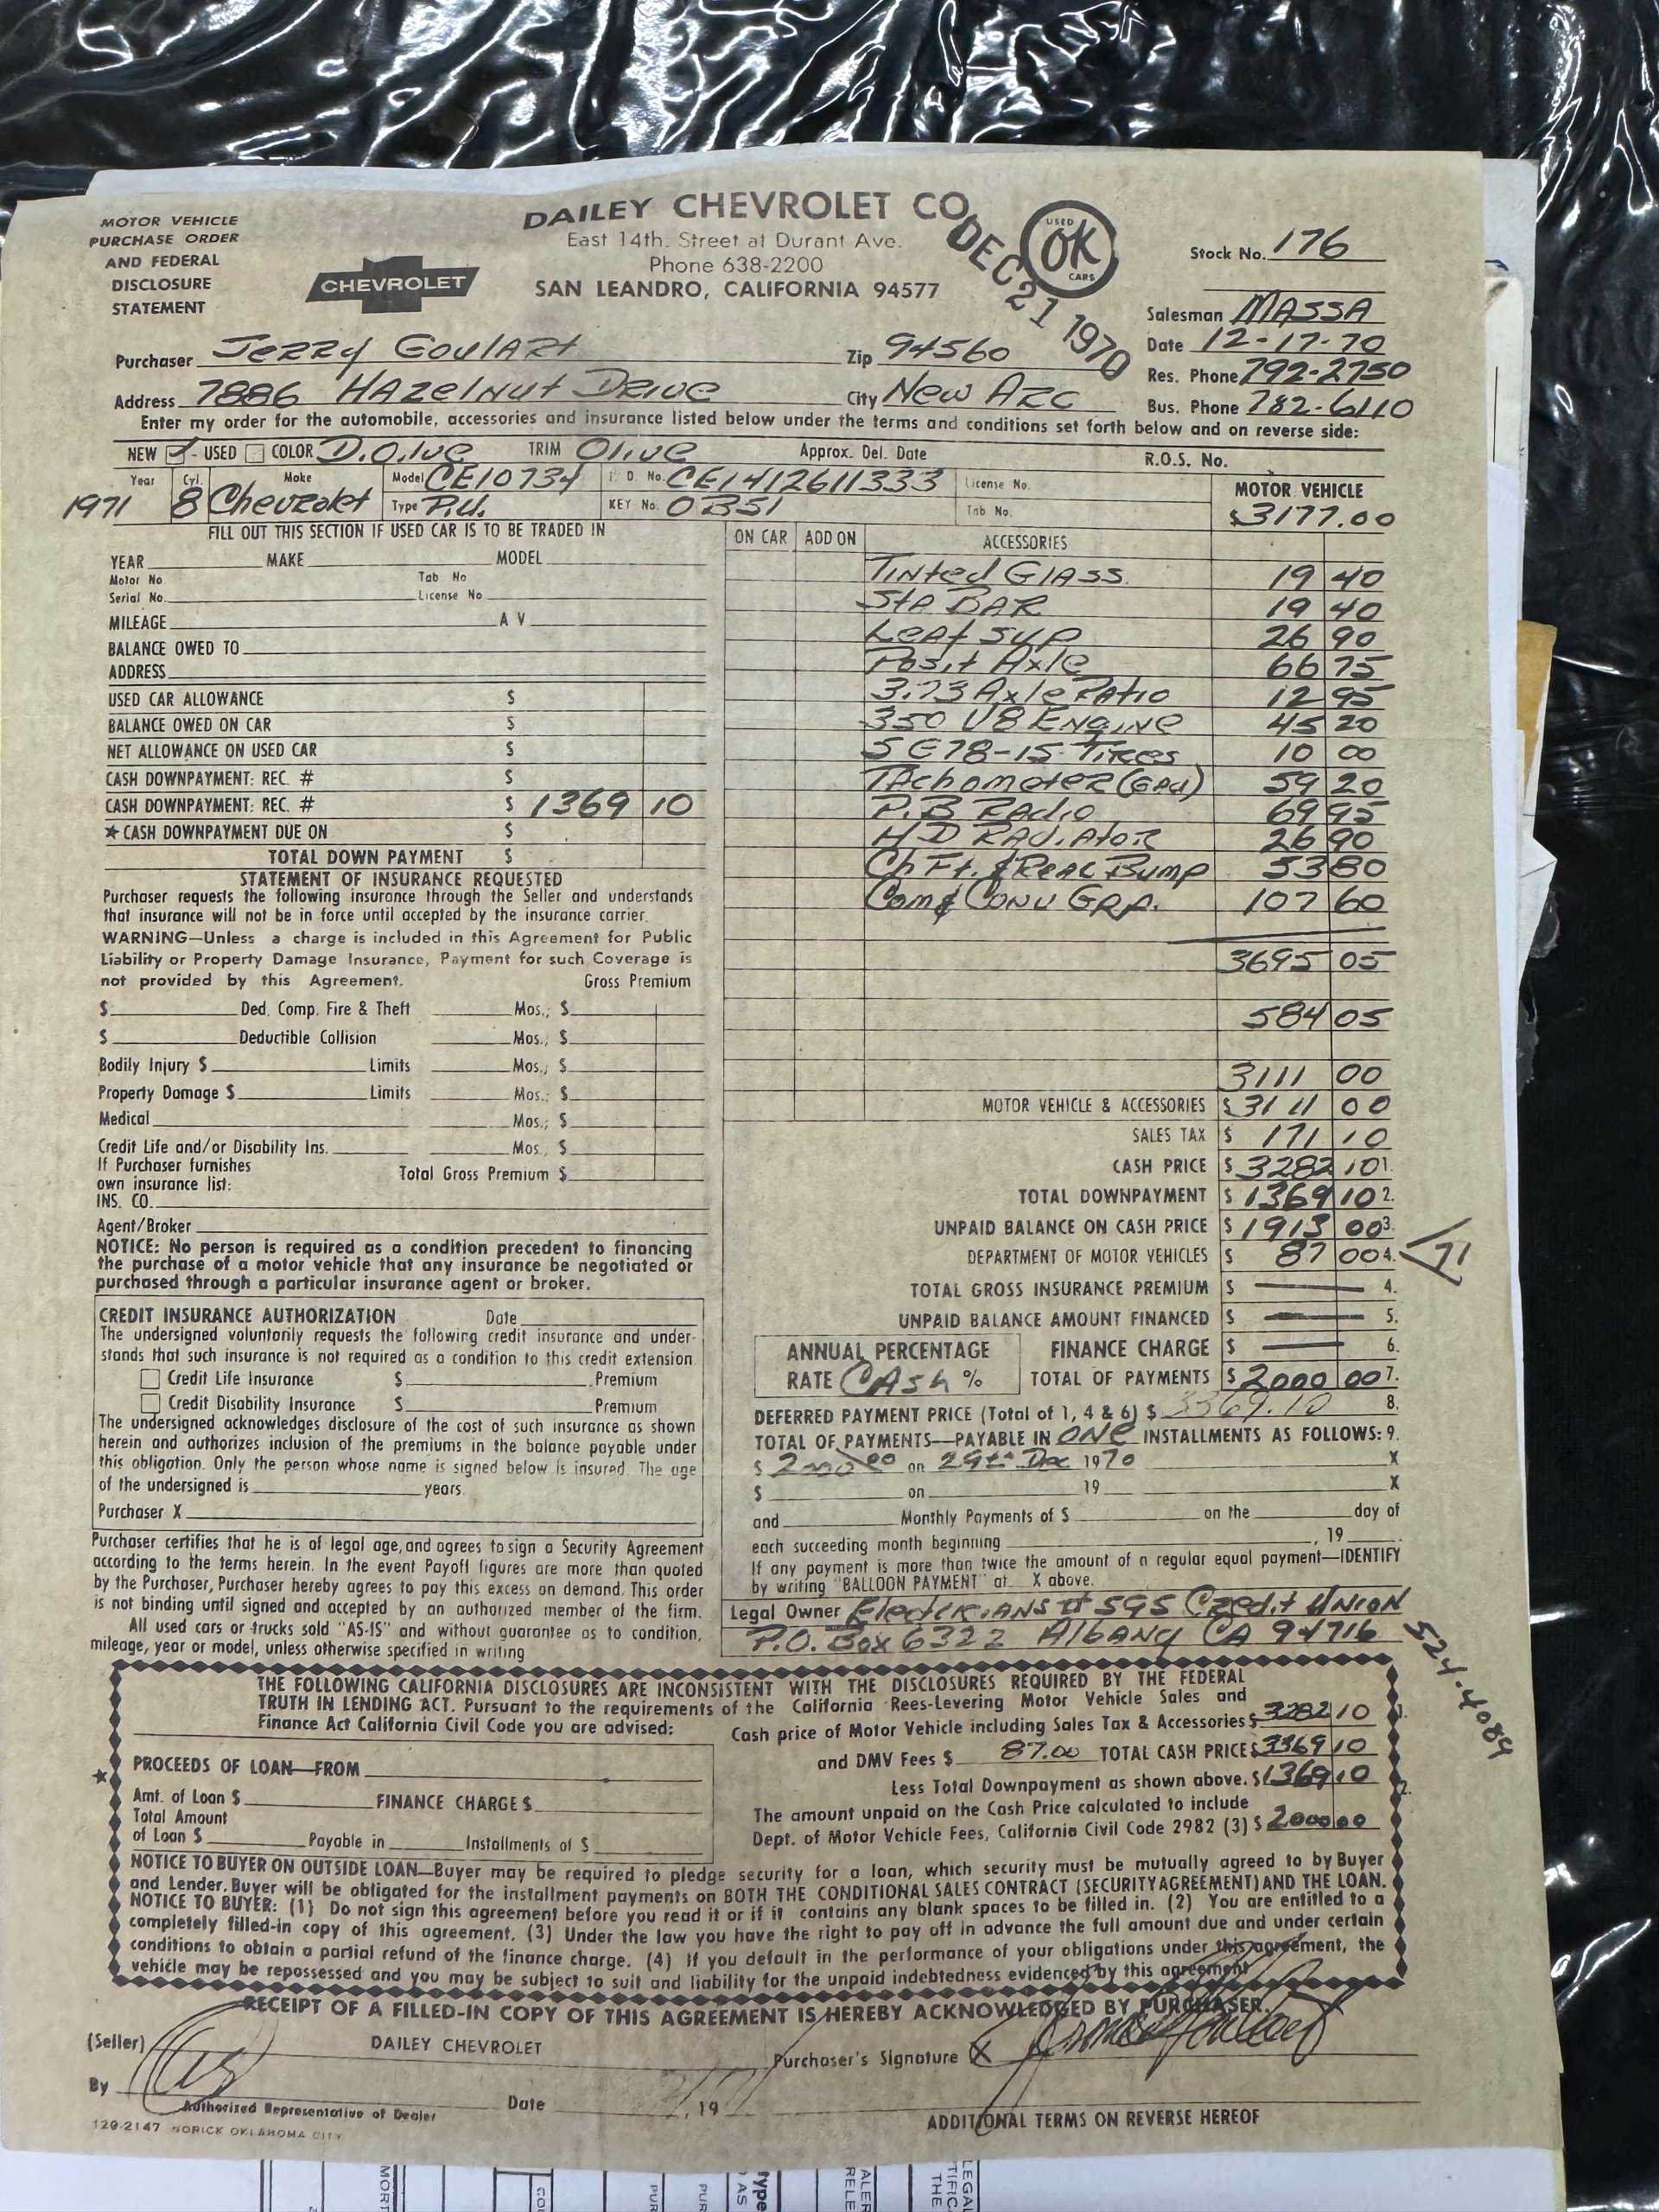 MOTOR VEHICLE
PURCHASE ORDER
AND FEDERAL
DISCLOSURE
STATEMENT
CHEVROLET
DAILEY CHEVROLET CO.
East 14th. Street at Durant Ave.
Phone 638-2200
SAN LEANDRO, CALIFORNIA 94577
DEC 21 1970
USED
OK
CARS
Stock No. 176
Salesman MASSA
Date 12-17-70
Res. Phone 792-2750
Bus. Phone 782-6110
Purchaser Jerry Goulart Zip 94560
Address 7886 Hazelnut Drive City New Arc
Enter my order for the automobile, accessories and insurance listed below under the terms and conditions set forth below and on reverse side:
NEW USED COLOR D.Olive TRIM Olive Approx. Del. Date R.O.S. No.
Year Cyl. Make Model CE10734 I. D. No. CE1412611333 License No. MOTOR VEHICLE
1971 8 Chevrolet Type P.U. KEY No. OB51 Tab No. $3177.00
FILL OUT THIS SECTION IF USED CAR IS TO BE TRADED IN
YEAR MAKE MODEL
Motor No. Tab No
Serial No. License No
MILEAGE A V
BALANCE OWED TO
ADDRESS
USED CAR ALLOWANCE $
BALANCE OWED ON CAR $
NET ALLOWANCE ON USED CAR $
CASH DOWNPAYMENT: REC. # $
CASH DOWNPAYMENT: REC. # $ 1369 10
★ CASH DOWNPAYMENT DUE ON $
TOTAL DOWN PAYMENT $
STATEMENT OF INSURANCE REQUESTED
Purchaser requests the following insurance through the Seller and understands
that insurance will not be in force until accepted by the insurance carrier.
WARNING—Unless a charge is included in this Agreement for Public
Liability or Property Damage Insurance, Payment for such Coverage is
not provided by this Agreement. Gross Premium
$ Ded. Comp. Fire & Theft Mos.; $
$ Deductible Collision Mos.; $
Bodily Injury $ Limits Mos.; $
Property Damage $ Limits Mos.; $
Medical Mos.; $
Credit Life and/or Disability Ins. Mos.; $
If Purchaser furnishes
own insurance list: Total Gross Premium $
INS. CO.
Agent/Broker
NOTICE: No person is required as a condition precedent to financing
the purchase of a motor vehicle that any insurance be negotiated or
purchased through a particular insurance agent or broker.
CREDIT INSURANCE AUTHORIZATION Date
The undersigned voluntarily requests the following credit insurance and under-
stands that such insurance is not required as a condition to this credit extension.
Credit Life Insurance $ Premium
Credit Disability Insurance $ Premium
The undersigned acknowledges disclosure of the cost of such insurance as shown
herein and authorizes inclusion of the premiums in the balance payable under
this obligation. Only the person whose name is signed below is insured. The age
of the undersigned is years.
Purchaser X
Purchaser certifies that he is of legal age, and agrees to sign a Security Agreement
according to the terms herein. In the event Payoff figures are more than quoted
by the Purchaser, Purchaser hereby agrees to pay this excess on demand. This order
is not binding until signed and accepted by an authorized member of the firm.
All used cars or trucks sold "AS-IS" and without guarantee as to condition,
mileage, year or model, unless otherwise specified in writing
ON CAR ADD ON ACCESSORIES
Tinted Glass 19 40
Sta Bar 19 40
Leaf Sup 26 90
Posit Axle 66 75
3.73 Axle Ratio 12 95
350 V8 Engine 45 20
5 G78-15 Tires 10 00
Tachometer (Gau) 59 20
P.B Radio 69 95
H D Radiator 26 90
Ch Ft. & Rear Bump 53 80
Com & Conv Grp. 107 60
3695 05
584 05
3111 00
MOTOR VEHICLE & ACCESSORIES $ 3111 00
SALES TAX $ 171 10
CASH PRICE $ 3282 10 1.
TOTAL DOWNPAYMENT $ 1369 10 2.
UNPAID BALANCE ON CASH PRICE $ 1913 00 3.
DEPARTMENT OF MOTOR VEHICLES $ 87 00 4. 71
TOTAL GROSS INSURANCE PREMIUM $ 4.
UNPAID BALANCE AMOUNT FINANCED $ 5.
ANNUAL PERCENTAGE FINANCE CHARGE $ 6.
RATE Cash % TOTAL OF PAYMENTS $ 2000 00 7.
DEFERRED PAYMENT PRICE (Total of 1, 4 & 6) $ 3369.10 8.
TOTAL OF PAYMENTS—PAYABLE IN ONE INSTALLMENTS AS FOLLOWS: 9.
$ 2000 00 on 29th Dec 1970 X
$ on 19 X
and Monthly Payments of $ on the day of
each succeeding month beginning , 19 .
If any payment is more than twice the amount of a regular equal payment—IDENTIFY
by writing "BALLOON PAYMENT" at X above.
Legal Owner Electricians # 595 Credit Union
P.O. Box 6322 Albany CA 94716
524-4089
THE FOLLOWING CALIFORNIA DISCLOSURES ARE INCONSISTENT WITH THE DISCLOSURES REQUIRED BY THE FEDERAL
TRUTH IN LENDING ACT. Pursuant to the requirements of the California Rees-Levering Motor Vehicle Sales and
Finance Act California Civil Code you are advised:
Cash price of Motor Vehicle including Sales Tax & Accessories $ 3282 10 1.
and DMV Fees $ 87.00 TOTAL CASH PRICE $ 3369 10
Less Total Downpayment as shown above. $ 1369 10 2.
The amount unpaid on the Cash Price calculated to include
Dept. of Motor Vehicle Fees, California Civil Code 2982 (3) $ 2000 00
★ PROCEEDS OF LOAN—FROM
Amt. of Loan $ FINANCE CHARGE $
Total Amount
of Loan $ Payable in Installments of $
NOTICE TO BUYER ON OUTSIDE LOAN—Buyer may be required to pledge security for a loan, which security must be mutually agreed to by Buyer
and Lender. Buyer will be obligated for the installment payments on BOTH THE CONDITIONAL SALES CONTRACT (SECURITY AGREEMENT) AND THE LOAN.
NOTICE TO BUYER: (1) Do not sign this agreement before you read it or if it contains any blank spaces to be filled in. (2) You are entitled to a
completely filled-in copy of this agreement. (3) Under the law you have the right to pay off in advance the full amount due and under certain
conditions to obtain a partial refund of the finance charge. (4) If you default in the performance of your obligations under this agreement, the
vehicle may be repossessed and you may be subject to suit and liability for the unpaid indebtedness evidenced by this agreement
RECEIPT OF A FILLED-IN COPY OF THIS AGREEMENT IS HEREBY ACKNOWLEDGED BY PURCHASER.
(Seller) DAILEY CHEVROLET Purchaser's Signature X
By Date , 19
Authorized Representative of Dealer
ADDITIONAL TERMS ON REVERSE HEREOF
120-2147 NORICK OKLAHOMA CITY